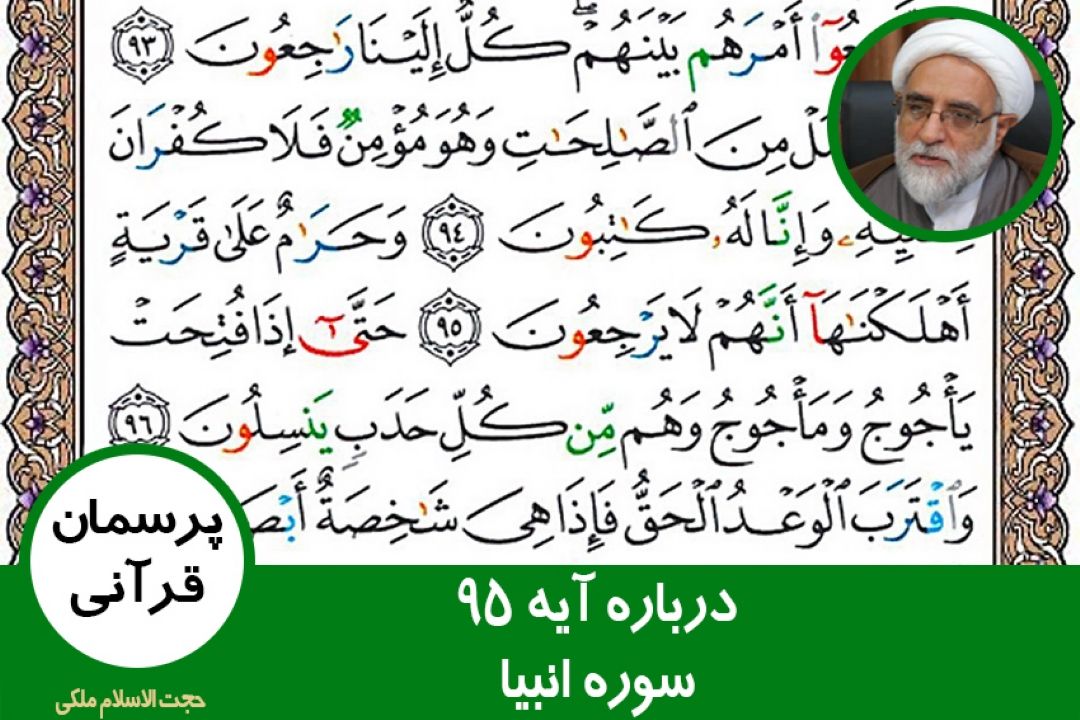 أَمْرَهُم بَيْنَهُمْ ۖ كُلٌّ إِلَيْنَا رَٰجِعُونَ ٩٣
مِنَ ٱلصَّٰلِحَٰتِ وَهُوَ مُؤْمِنٌ فَلَا كُفْرَانَ
وَإِنَّا لَهُۥ كَٰتِبُونَ ٩٤ وَحَرَٰمٌ عَلَىٰ قَرْيَةٍ
أَهْلَكْنَٰهَآ أَنَّهُمْ لَا يَرْجِعُونَ ٩٥ حَتَّىٰٓ إِذَا فُتِحَتْ
يَأْجُوجُ وَمَأْجُوجُ وَهُم مِّن كُلِّ حَدَبٍ يَنسِلُونَ ٩٦
وَٱقْتَرَبَ ٱلْوَعْدُ ٱلْحَقُّ فَإِذَا هِىَ شَٰخِصَةٌ
پرسمان
قرآنی
درباره آیه ۹۵
سوره انبیا
حجت الاسلام ملکی